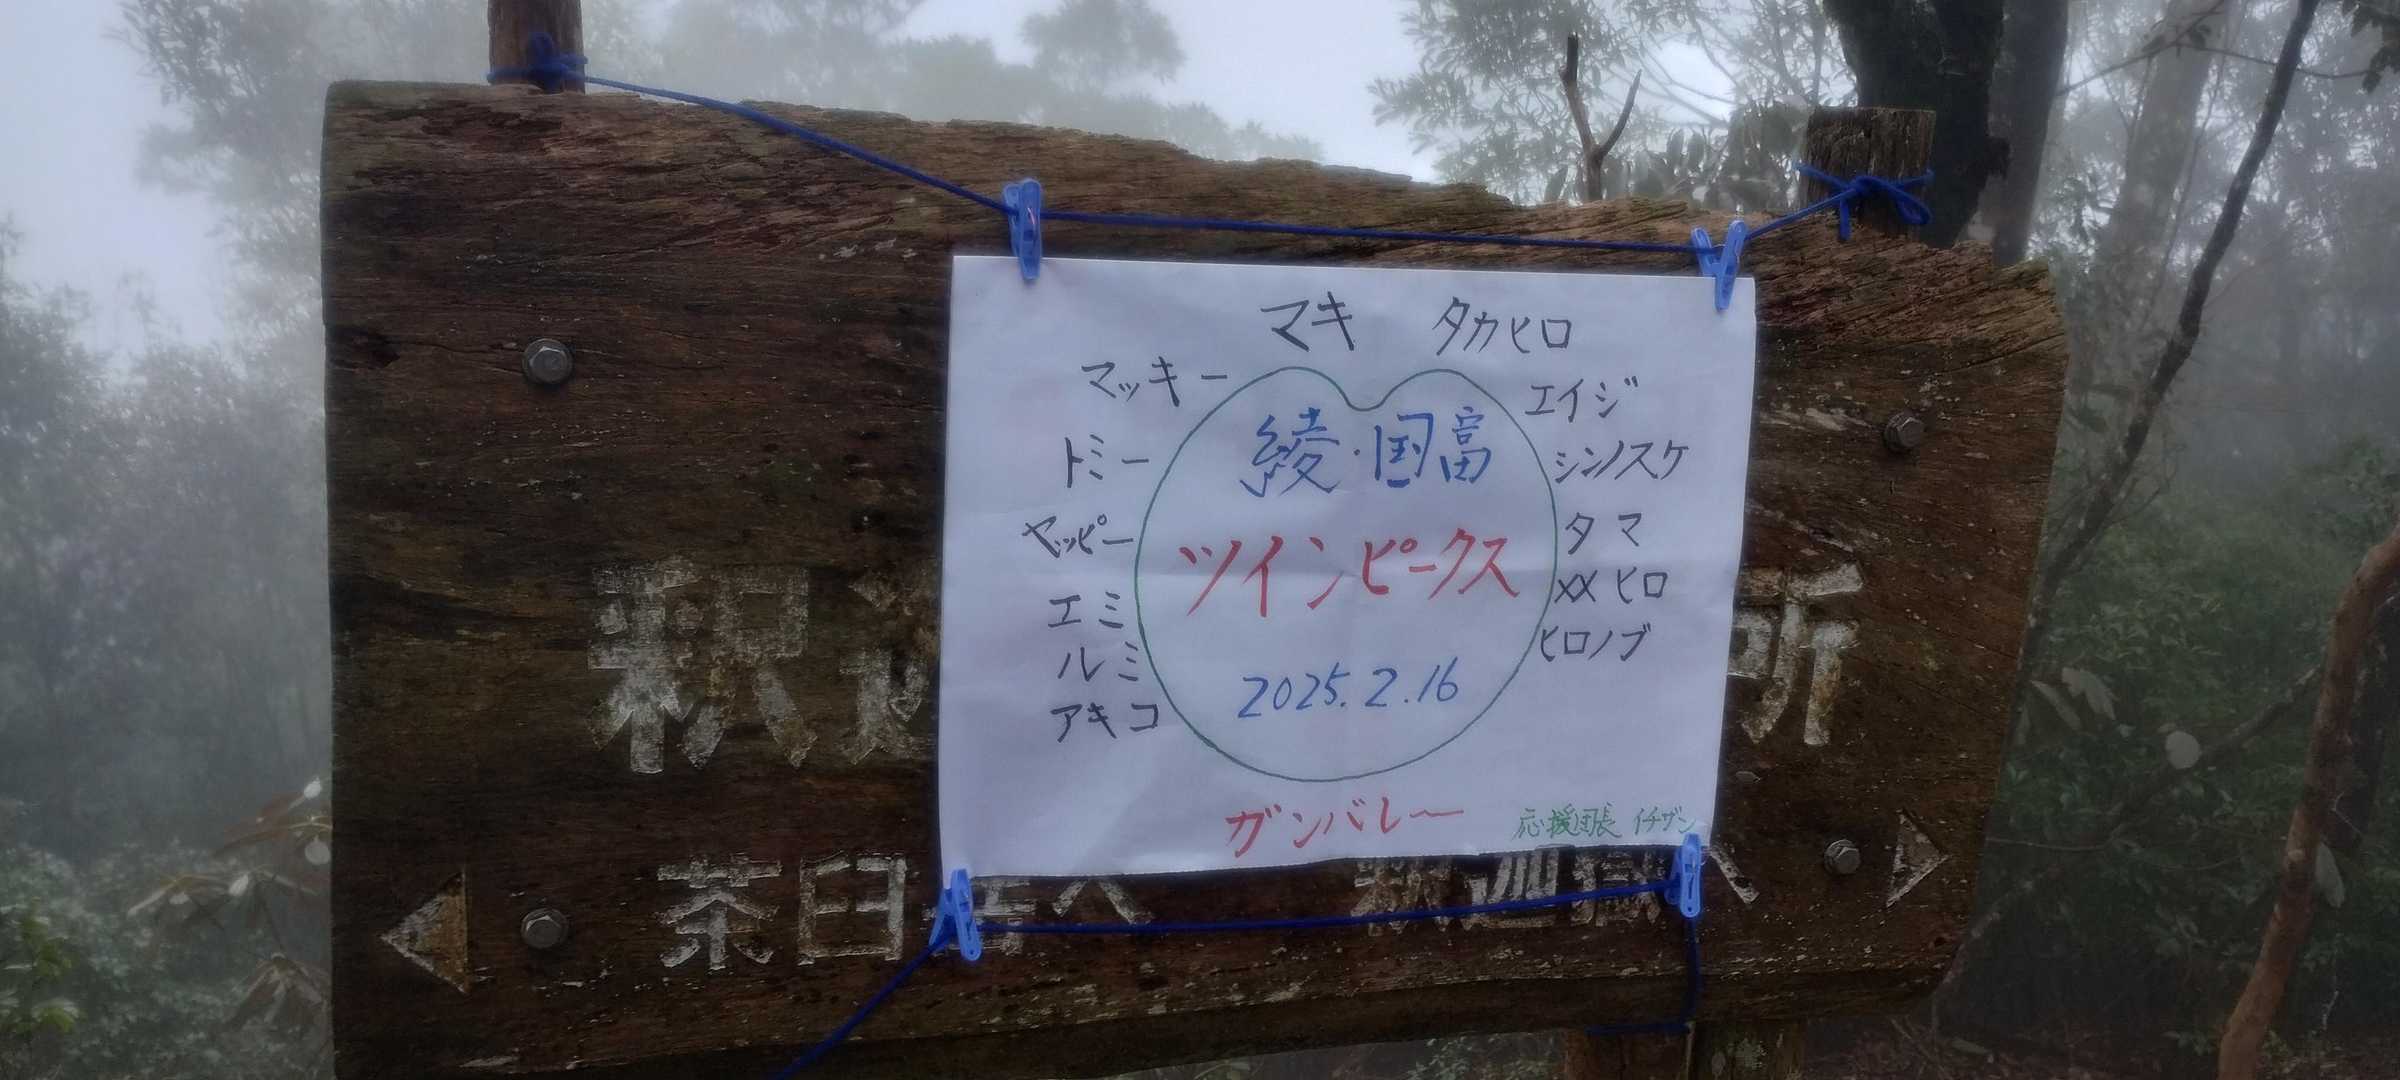 マキ タカヒロ
マッキー エイジ
綾・国富
トミー シンノスケ
ヤッピー タマ
ツインピークス
エミ メメヒロ
ルミ ヒロノブ
アキコ
2025.2.16
ガンバレー 応援団長 イチザン
釈迦 所
茶臼 へ 釈迦嶽へ